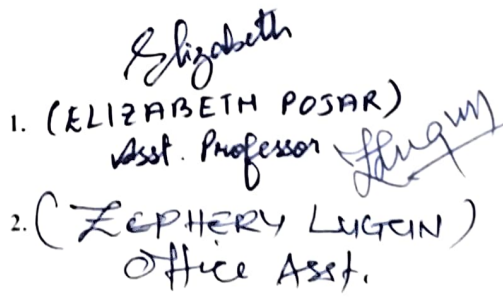 Elizabeth
1. (ELIZABETH POJAR)
Asst. Professor
2. (ZEPHERY LUGUN)
Office Asst.